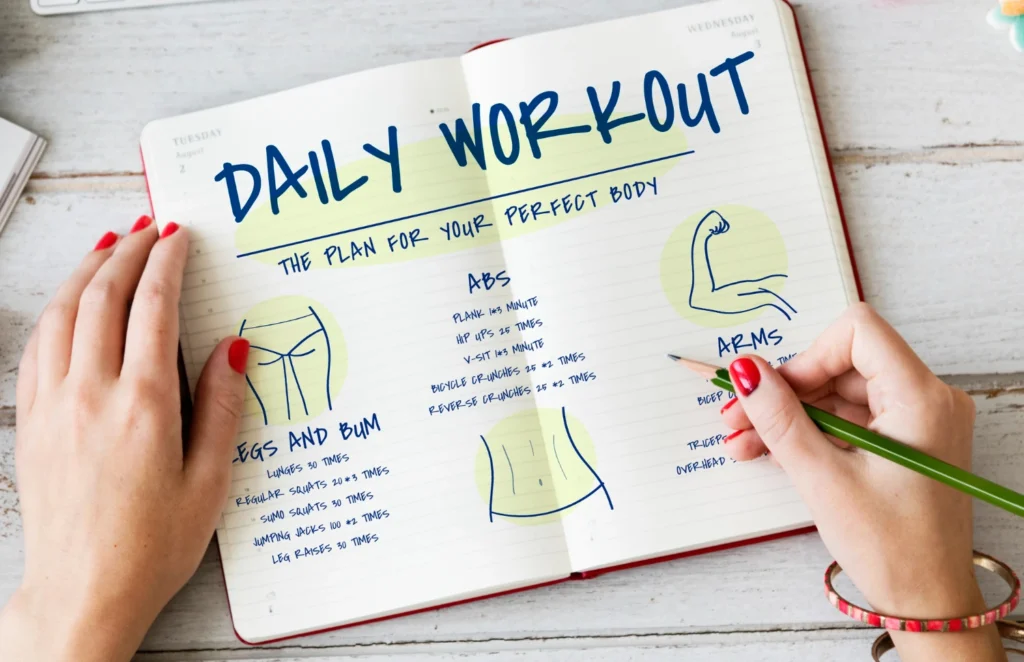 TUESDAY
August
2
WEDNESDAY
August
3
DAILY WORKOUT
THE PLAN FOR YOUR PERFECT BODY
LEGS AND BUM
LUNGES 30 TIMES
REGULAR SQUATS 20*3 TIMES
SUMO SQUATS 30 TIMES
JUMPING JACKS 100 *2 TIMES
LEG RAISES 30 TIMES
ABS
PLANK 1*3 MINUTE
HIP UPS 25 TIMES
V-SIT 1*3 MINUTE
BICYCLE CRUNCHES 25 *2 TIMES
REVERSE CRUNCHES 25 *2 TIMES
ARMS
BICEP
TRICEPS
OVERHEAD